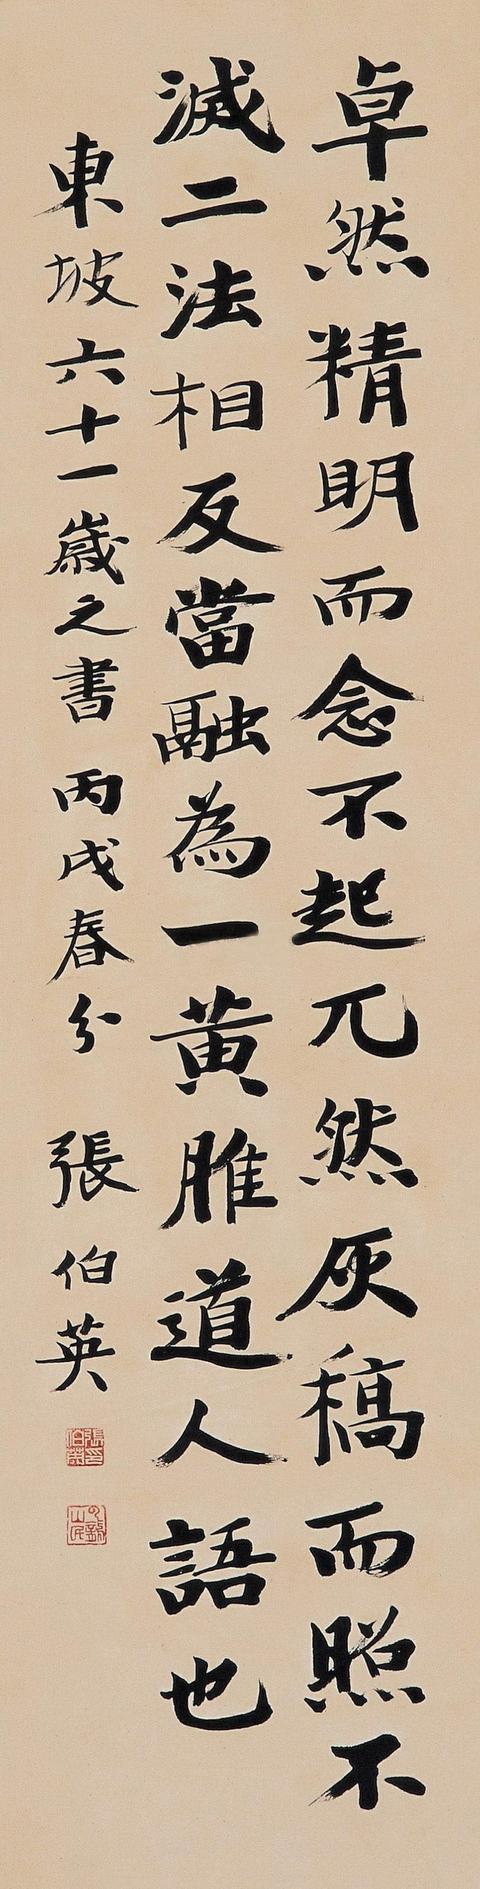 卓然精明而念不起兀然灰稿而照不
滅二法相反當融為一黃脽道人語也
東坡六十一歲之書 丙戌春分 張伯英
張伯英印